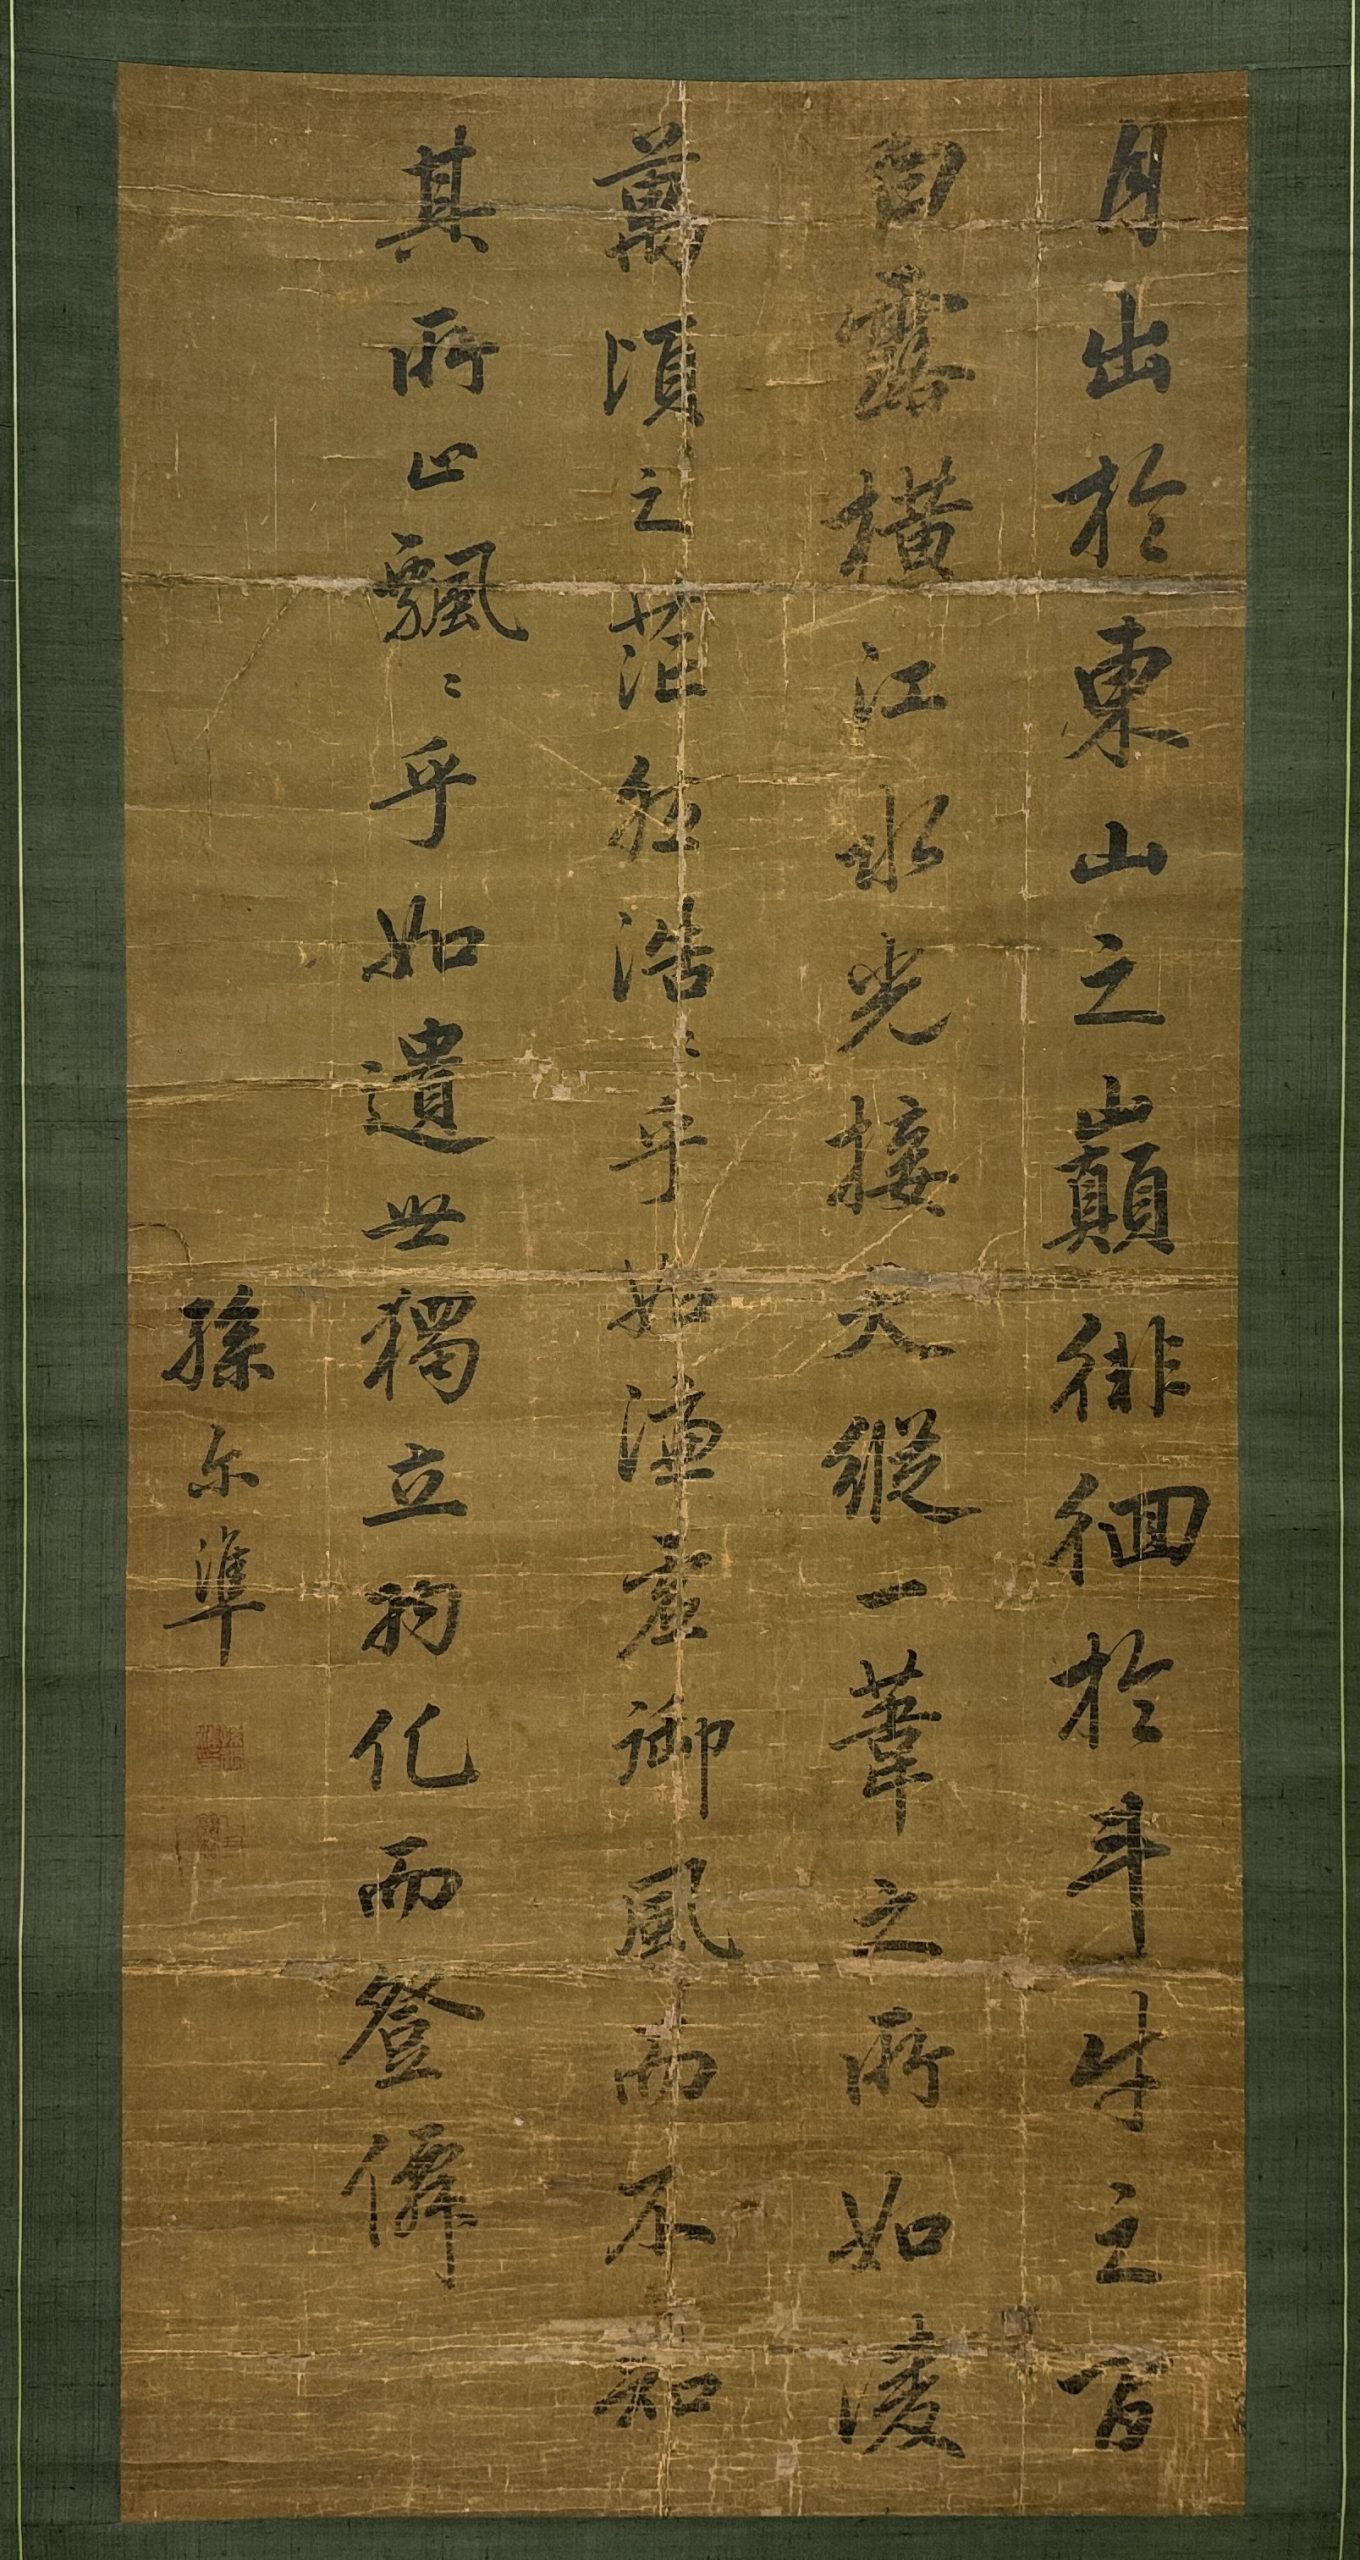 月出於東山之巔徘徊於斗牛之間
白露橫江水光接天縱一葦之所如凌
萬頃之茫然浩〻乎如憑虛御風而不知
其所止飄〻乎如遺世獨立羽化而登僊
孫尔準